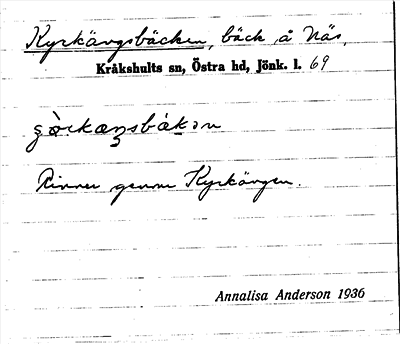 Kyrkängsbäcken, bäck å Näs,
Kråkshults sn, Östra hd, Jönk. l. 69
Rinner genom Kyrkängen.
Annalisa Anderson 1936